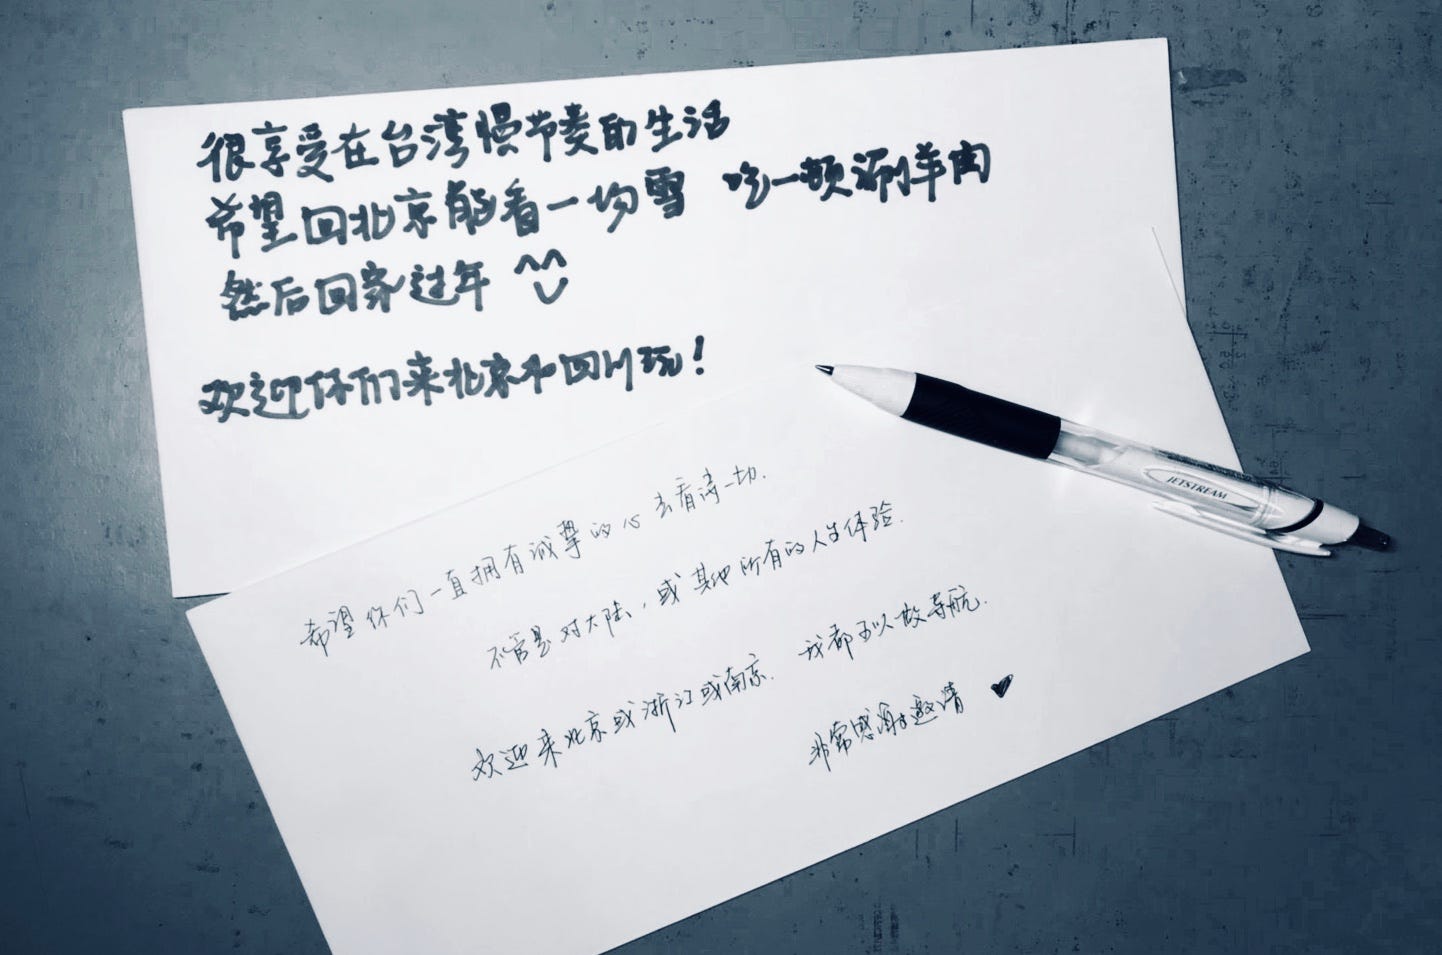 很享受在台湾慢节奏的生活
希望回北京能看一场雪 吃一顿涮羊肉
然后回家过年
欢迎你们来北京和四川玩！
希望你们一直拥有诚挚的心去看待一切.
不管是对大陆，或其他所有的人生体验.
欢迎来北京或浙江或南京. 我都可以做导航.
非常感谢邀请
JETSTREAM